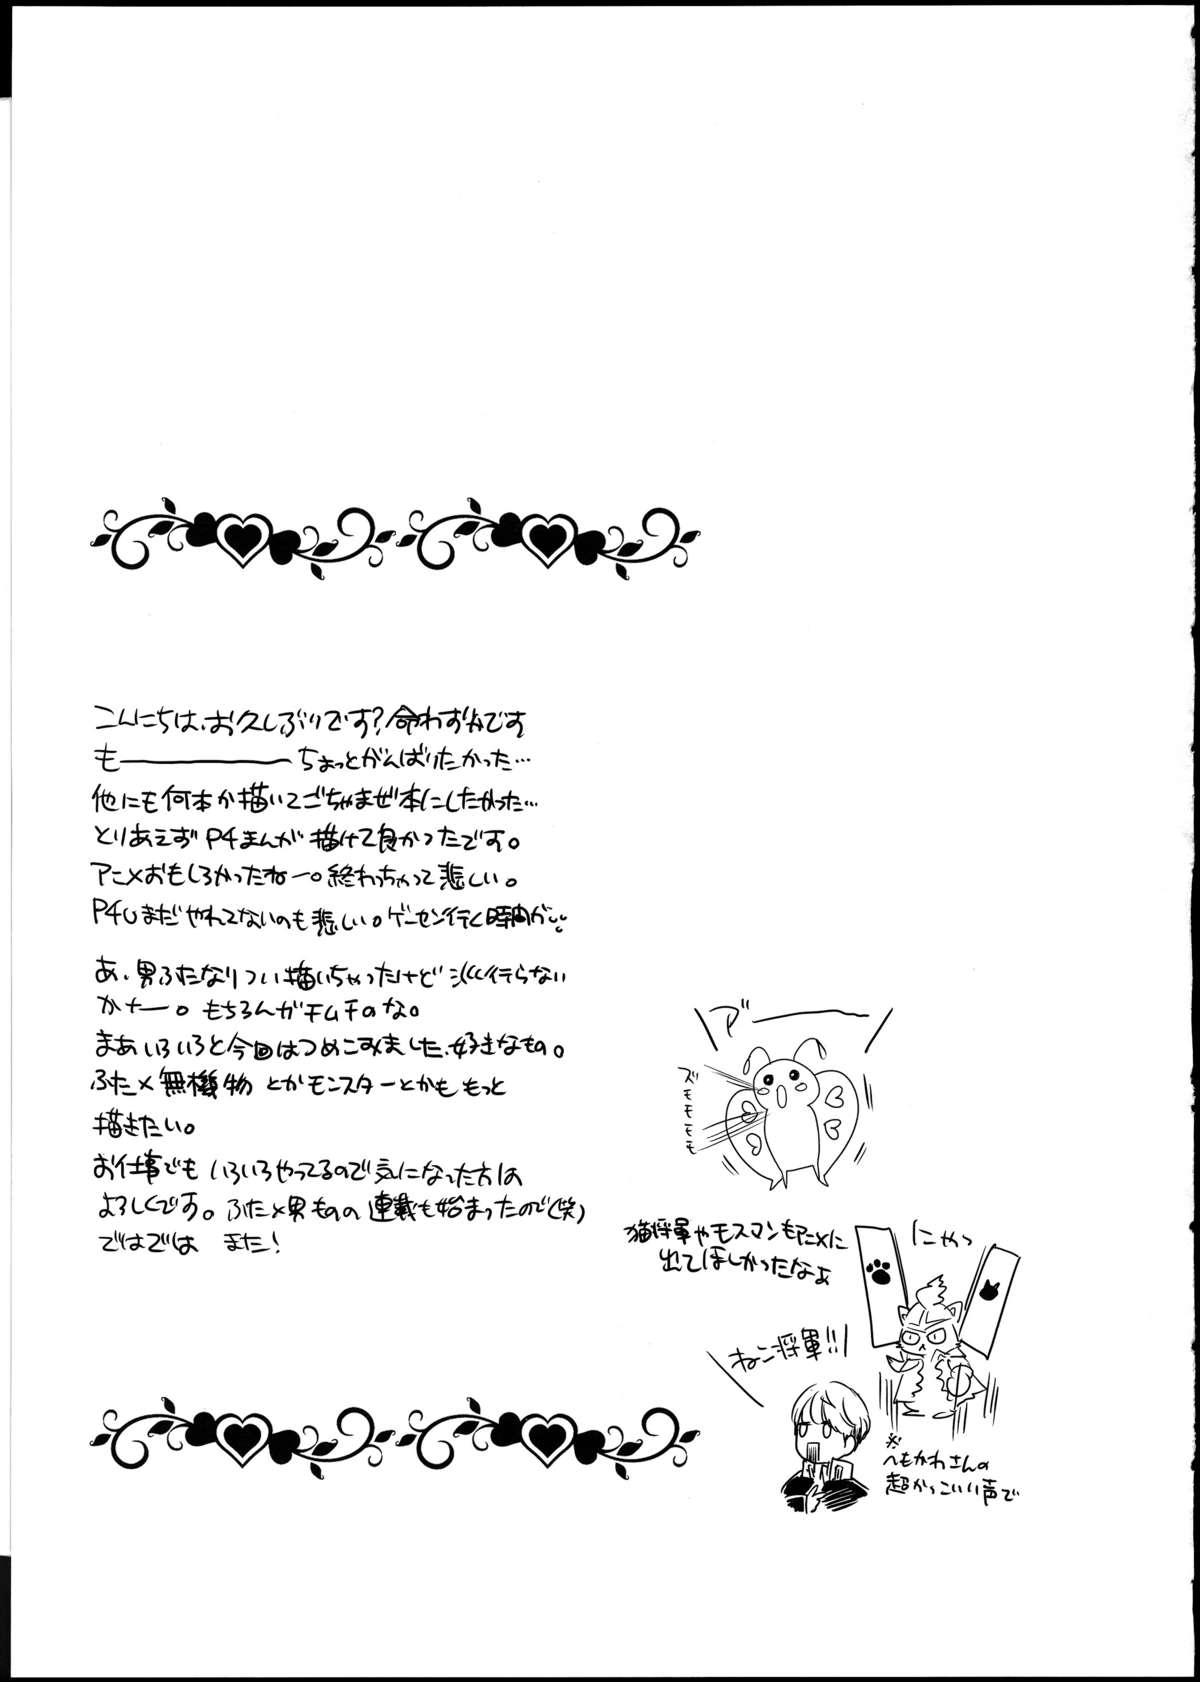 こんにちは、お久しぶりです?命わずかです
も――――――ちょっとがんばりたかった…
他にも何本か描いてごちゃまぜ本にしたかった…
とりあえずP4まんが描けて良かったです。
アニメおもしろかったねー。終わっちゃって悲しい。
P4Uまだやれてないのも悲しい。ゲーセン行く時間が…
あ、男ふたなりつい描いちゃったけど 流行らない
かなー。もちろんガチムチのな。
まあいろいろと今回はつめこみました、好きなもの。
ふた×無機物 とかモンスターとかももっと
描きたい。
お仕事でも いろいろやってるので気になった方は
よろしくです。ふた×男ものの連載も始まったので(笑)
ではでは また!
ア゛ー
ズモモモモ
猫将軍やモスマンもアニメに
出てほしかったなぁ
にゃっ
ねこ将軍!!
※
へもかわさんの
超かっこいい声で